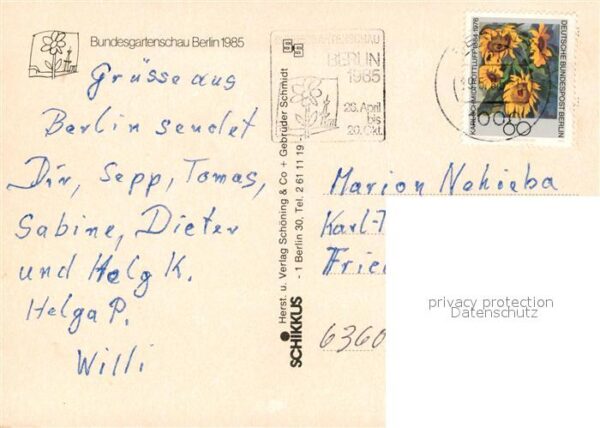 Bundesgartenschau Berlin 1985
Grüsse aus
Berlin sendet
Dir, Sepp, Tomas,
Sabine, Dieter
und Helg K.
Helga P.
Willi
Herst. u. Verlag Schöning & Co + Gebrüder Schmidt
- 1 Berlin 30, Tel. 2 61 11 19 -
SCHIKKUS
BERLIN
1985
26. April
bis
20. Okt.
DEUTSCHE BUNDESPOST BERLIN
KARL SCHMIDT-ROTTLUFF 1884-1976
80
Marion Nehieba
Karl-
Fried
6360
privacy protection
Datenschutz